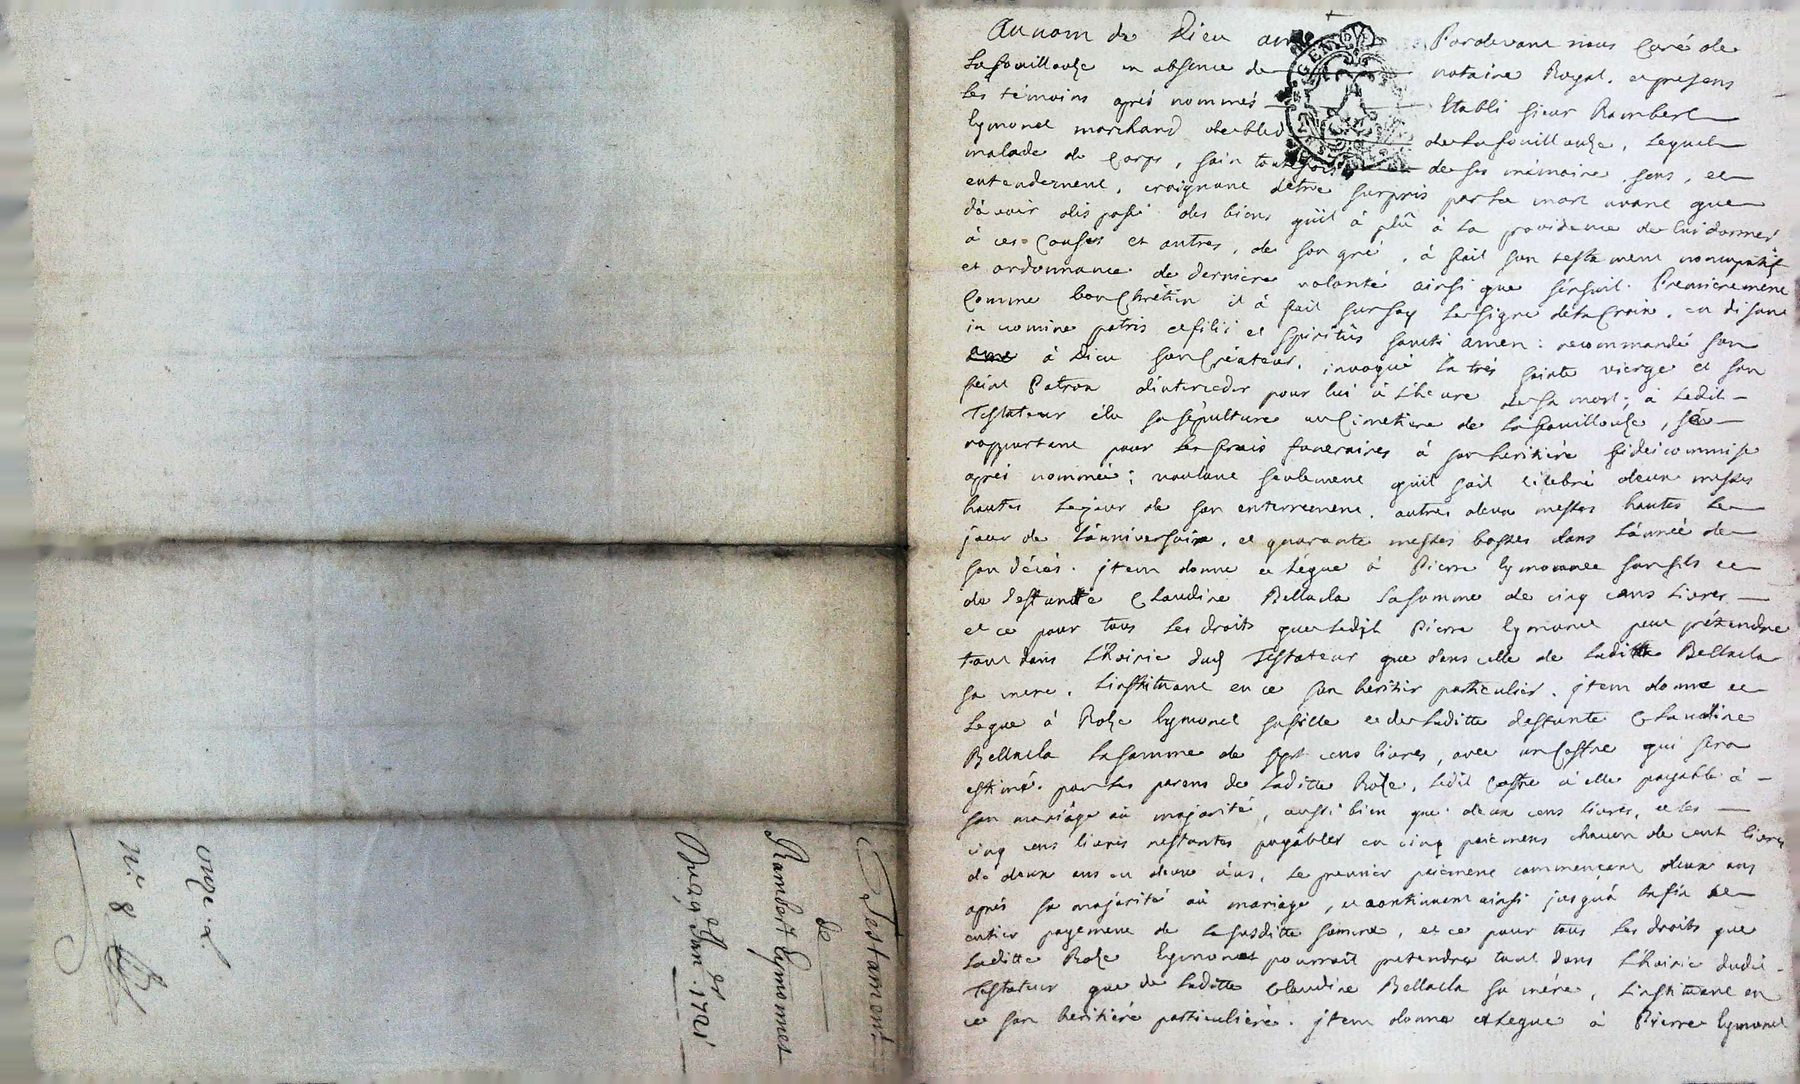 Testament
de
Rambert Eymonet
Du 29 Janer 1721
onze
no 8
GEN
Au nom de Dieu amen Pardevant nous Curé de
Lafouillouze en absence de notaire Royal, et presens
les témoins aprés nommés Etabli sieur Rambert
Eymonet marchand de bled de Lafouillouze, lequel
malade de Corps, sain toutefois de ses mémoire, sens, et
entendement, craignant détre surpris par la mort avant que
dávoir disposé des biens qu'il à plû à la providence de lui donner
à ces Causes et autres, de son gré, à fait son testament noncupatif
et ordonnance de derniere volonté ainsi que sénsuit. Premierement
Comme bon Chrétien il à fait sur soy le signe de la Croix, en disant
in nomine patris et filii et spiritûs sancti amen: recommandé son
ame à Dieu son Créateur, invoqué la trés sainte vierge et son
saint Patron d'interceder pour lui à l'heure de sa mort; à ledit
Testateur élu sa sépulture au Cimetiere de Lafouillouze, sén
rapportant pour les frais funeraires à son heritiére fideicommise
aprés nommée; voulant seulement qu'il soit célebré deux messes
hautes le jour de son enterrement, autres deux messes hautes le
jour de l'ánniversaire, et quarante messes basses dans l'ánnée de
son décés. jtem donne et légue à Pierre Eymonet son fils et
de deffunte Claudine Bellacla la somme de cinq cens livres
et ce pour tous les droits que ledit Pierre Eymonet peut prétendre
tant dans l'hoirie dud Testateur que dans celle de ladite Bellacla
sa mere, l'instituant en ce son heritier particulier. jtem donne et
legue à Roze Eymonet sa fille et de laditte deffunte Claudine
Bellacla la somme de sept cens livres, avec un Coffre qui sera
estimé par les parens de laditte Roze, ledit Coffre à elle payable à
son mariage où majorité, aussi bien que deux cens livres, et les
cinq cens livres restantes payables en cinq paiemens chacun de cent livres
de deux ans en deux ans, le premier paiement commençant deux ans
aprés sa majorité où mariage, et continuant ainsi jusqu'à la fin et
entier payement de la susditte somme, et ce pour tous les droits que
laditte Roze Eymonet pourroit pretendre tant dans l'hoirie dudit
Testateur que de laditte Claudine Bellacla sa mére, l'instituant en
ce son heritiére particuliére. jtem donne et legue à Pierre Eymonet